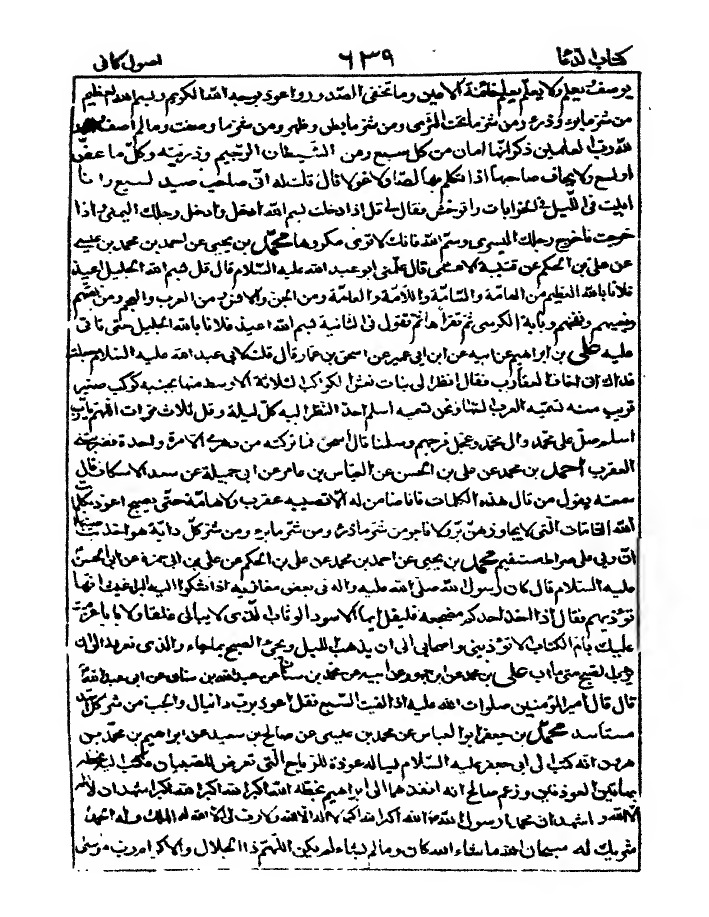 كتاب الدعا ٦٣٩ اصول كافى
يوصف يعلم ولا يعلم يعلم خائنة الاعين وما تخفى الصدور واعوذ بوجه الله الكريم وبسم الله العظيم
من شر ما برء وذرء ومن شر ما تحت الثرى ومن شر ما بطن وظهر ومن شر ما وصفت وما لم اصف
لله رب العلمين ذكر انها امان من كل سبع ومن الشيطان الرجيم وذريته وكل ما عض
او لسع ولا يخاف صاحبها اذا تكلم بها لصا ولا غولا قال قلت له انى صاحب صيد لسبع وانا
ابيت فى الليل فى الخرابات واتوحش فقال لى قل اذا دخلت بسم الله ادخل وادخل رجلك اليمنى واذا
خرجت فاخرج رجلك اليسرى وسم الله فانك لا ترى مكروها محمد بن يحيى عن احمد بن محمد بن عيسى
عن على بن الحكم عن قتيبة الاعشى قال علمنى ابو عبد الله عليه السلام قال قل بسم الله الجليل اعيذ
فلانا بالله العظيم من الهامة والسامة واللامة والعامة ومن الجن والانس ومن العرب والعجم ومن نفثهم
وبغيهم ونفخهم وباية الكرسى ثم تقرأها ثم تقول فى الثانية بسم الله اعيذ فلانا بالله الجليل حتى تاتى
عليه على بن ابراهيم عن ابيه عن ابن ابى عمير عن اسحق بن عمار قال قلت لابى عبد الله عليه السلام جعلت
فداك انى اخاف العقارب فقال انظر الى بنات نعش الكواكب الثلاثة الاوسط منها بجنبه كوكب صغير
قريب منه تسميه العرب السها ونحن نسميه اسلم احد النظر اليه كل ليلة وقل ثلاث مرات اللهم رب
اسلم صل على محمد وال محمد وعجل فرجهم وسلمنا قال اسحق فما تركته من دهرى الا مرة واحدة فضربتنى
العقرب احمد بن محمد عن على بن الحسن عن العباس بن عامر عن ابى جميلة عن سعد الاسكاف قال
سمعته يقول من قال هذه الكلمات فانا ضامن له الا تصيبه عقرب ولا هامة حتى يصبح اعوذ بكلمات
الله التامات التى لا يجاوزهن بر ولا فاجر من شر ما ذرء ومن شر ما برء ومن شر كل دابة هو اخذ بناصيتها
ان ربى على صراط مستقيم محمد بن يحيى عن احمد بن محمد عن على بن الحكم عن على بن ابى حمزة عن ابى الحسن
عليه السلام قال كان رسول الله صلى الله عليه واله فى بعض مغازيه اذا شكوا اليه البراغيث انها
تؤذيهم فقال اذا اخذ احدكم مضجعه فليقل ايها الاسود الوثاب الذى لا يبالى غلقا ولا بابا عزمت
عليك بام الكتاب الا تؤذينى واصحابى الى ان يذهب الليل ويجئ الصبح بما جاء والذى نعرفه الى ان
يؤب الصبح متى ما اب على بن محمد عن ابن جمهور عن ابيه عن محمد بن سنان عن عبد الله بن سنان عن ابى عبد الله
قال قال امير المؤمنين صلوات الله عليه اذا لقيت السبع فقل اعوذ برب دانيال والجب من شر كل اسد
مستاسد محمد بن جعفر ابو العباس عن محمد بن عيسى عن صالح بن سعيد عن ابراهيم بن محمد بن
هرون انه كتب الى ابى جعفر عليه السلام يساله عوذة للرياح التى تعرض للصبيان فكتب اليه بخطه
بهاتين العوذتين وزعم صالح انه انفذهما الى ابراهيم بخطه الله اكبر الله اكبر الله اكبر اشهد ان لا اله
الا الله واشهد ان محمدا رسول الله الله اكبر الله اكبر لا اله الا الله ولا رب لى الا الله له الملك وله الحمد لا
شريك له سبحان الله ما شاء الله كان وما لم يشاء لم يكن اللهم ذا الجلال والاكرام رب موسى